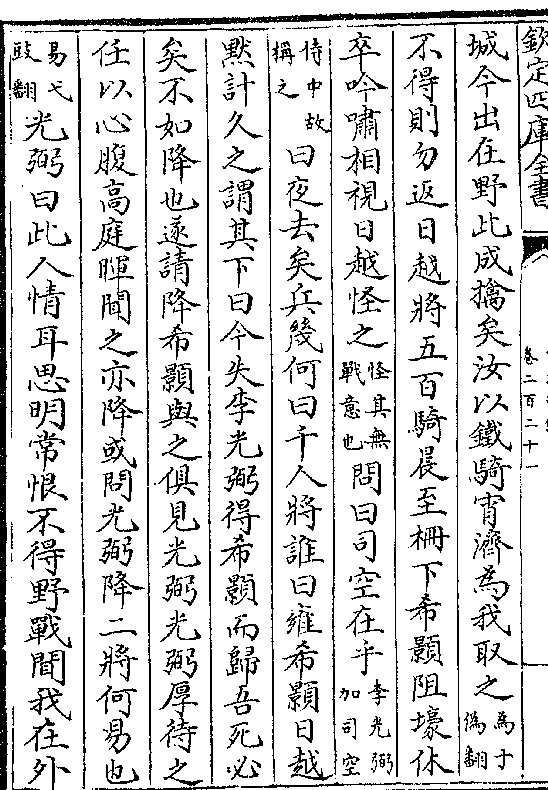 欽定四庫全書
卷二百二十一
城今出在野此成擒矣汝以鐵騎宵濟為我取之為于偽翻
不得則勿返日越將五百騎晨至柵下希顥阻壕休
卒吟嘯相視日越怪之怪其無戰意也問曰司空在乎李光弼加司空
侍中故稱之曰夜去矣兵幾何曰千人將誰曰雍希顥日越
默計久之謂其下曰今失李光弼得希顥而歸吾死必
矣不如降也遂請降希顥與之俱見光弼光弼厚待之
任以心腹高庭暉聞之亦降或問光弼降二將何易也
易弋豉翻光弼曰此人情耳思明常恨不得野戰聞我在外